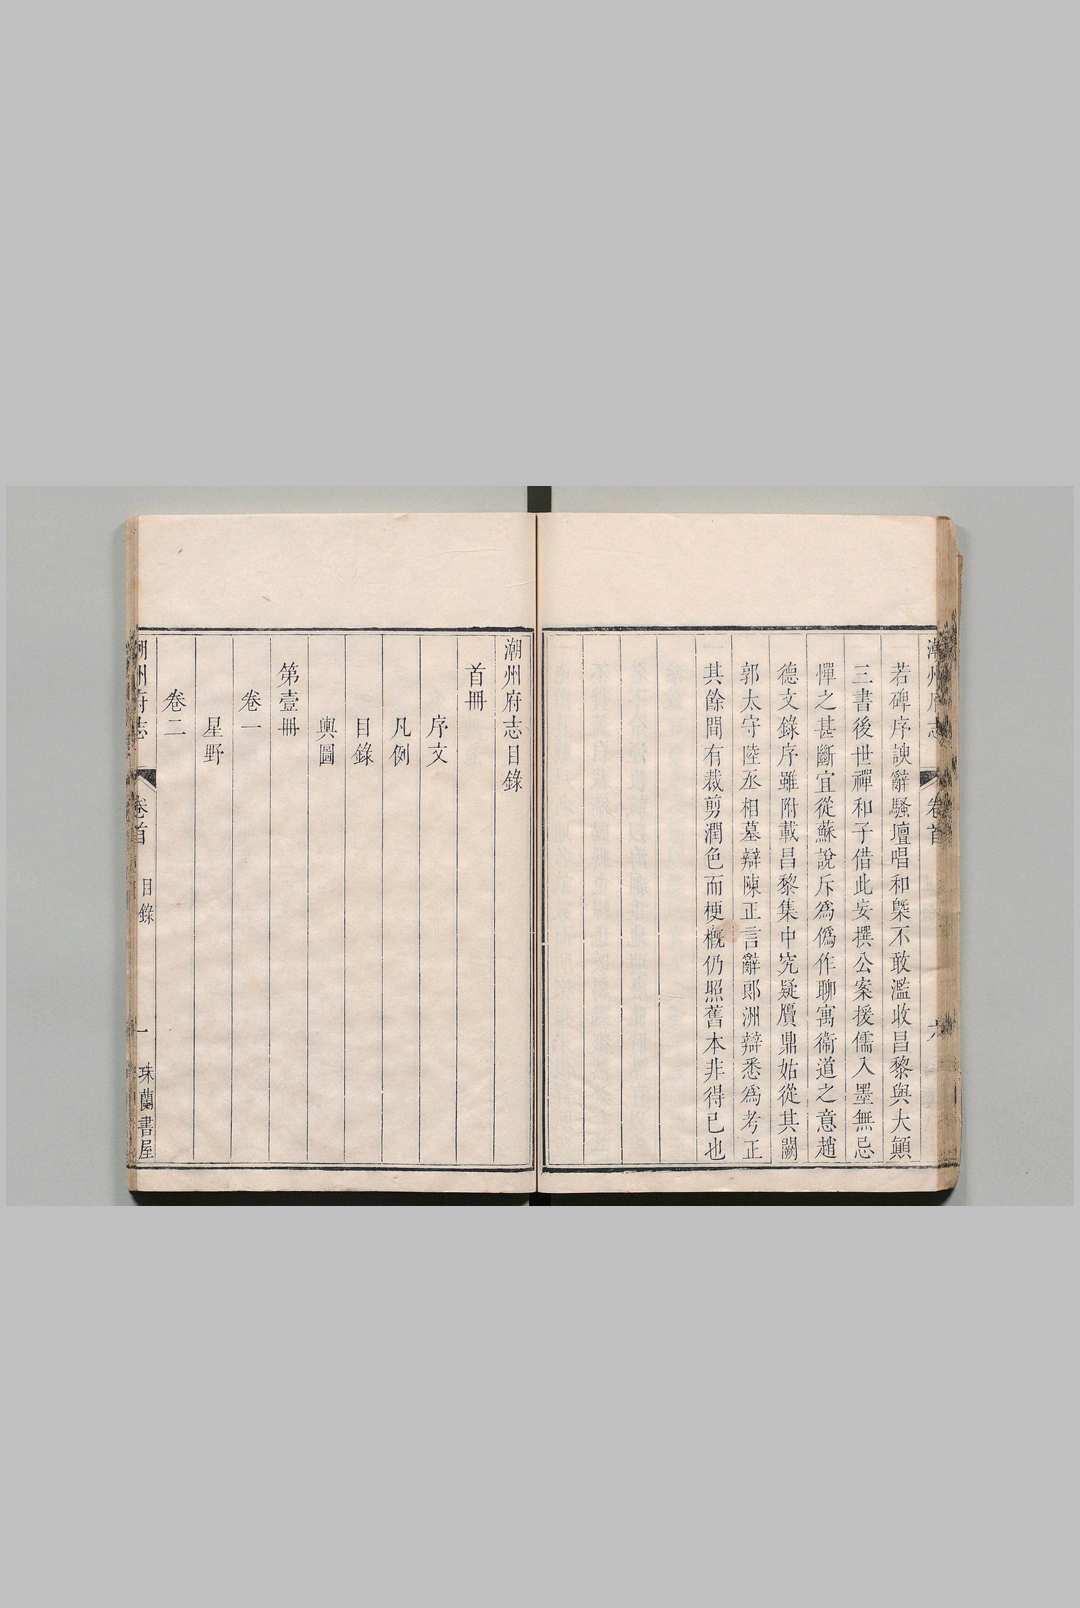 潮州府志
卷首
六
若碑序諛辭騷壇唱和槩不敢濫收昌黎與大顛
三書後世禪和子借此妄撰公案援儒入墨無忌
憚之甚斷宜從蘇說斥為僞作聊寓衞道之意趙
德文錄序雖附載昌黎集中究疑贗鼎姑從其闕
郭太守陸丞相墓辯陳正言辭郎洲辯悉為考正
其餘間有裁剪潤色而梗概仍照舊本非得已也
潮州府志目錄
首冊
序文
凡例
目錄
輿圖
第壹冊
卷一
星野
卷二
潮州府志
卷首
目錄
一
珠蘭書屋